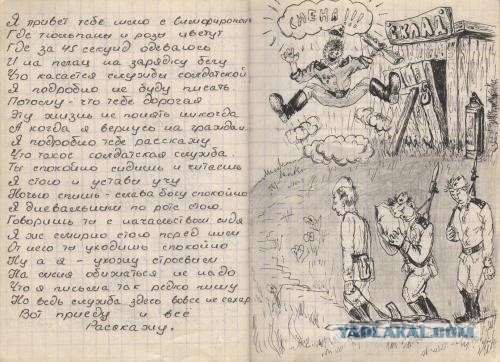 Я привет тебе шлю с Симферополя
Где тюльпаны и розы цветут
Где за 45 секунд одеваюсь
И на плац на зарядку бегу
Что касается службы солдатской
Я подробно не буду писать
Потому-что тебе дорогая
Эту жизнь не понять никогда
А когда я вернусь на граждан.
Я подробно тебе расскажу
Что такое солдатская служба.
Ты спокойно сидишь и читаешь
Я стою и уставы учу
Ночью спишь - слава богу спокойно
Я дневальным по роте стою.
Говоришь ты с начальством сидя
Я же смирно стою перед ним
От него ты уходишь спокойно
Ну а я - ухожу строевым
На меня обижаться не надо
Что я письма так редко пишу
Но ведь служба здесь вовсе не сахар
Вот приеду и всё
Расскажу.
СМЕНА!!!
СКЛАД
YAPLAKAL.COM